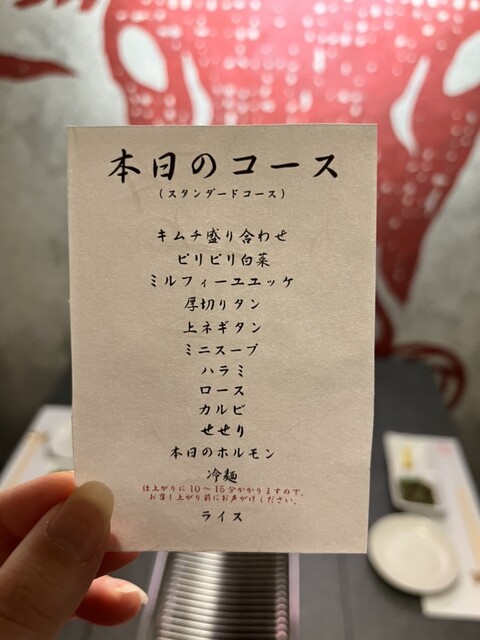 本日のコース
(スタンダードコース)
キムチ盛り合わせ
ピリピリ白菜
ミルフィーユユッケ
厚切りタン
上ネギタン
ミニスープ
ハラミ
ロース
カルビ
せせり
本日のホルモン
冷麺
仕上がりに10〜15分かかりますので、
お召し上がり前にお声がけください。
ライス